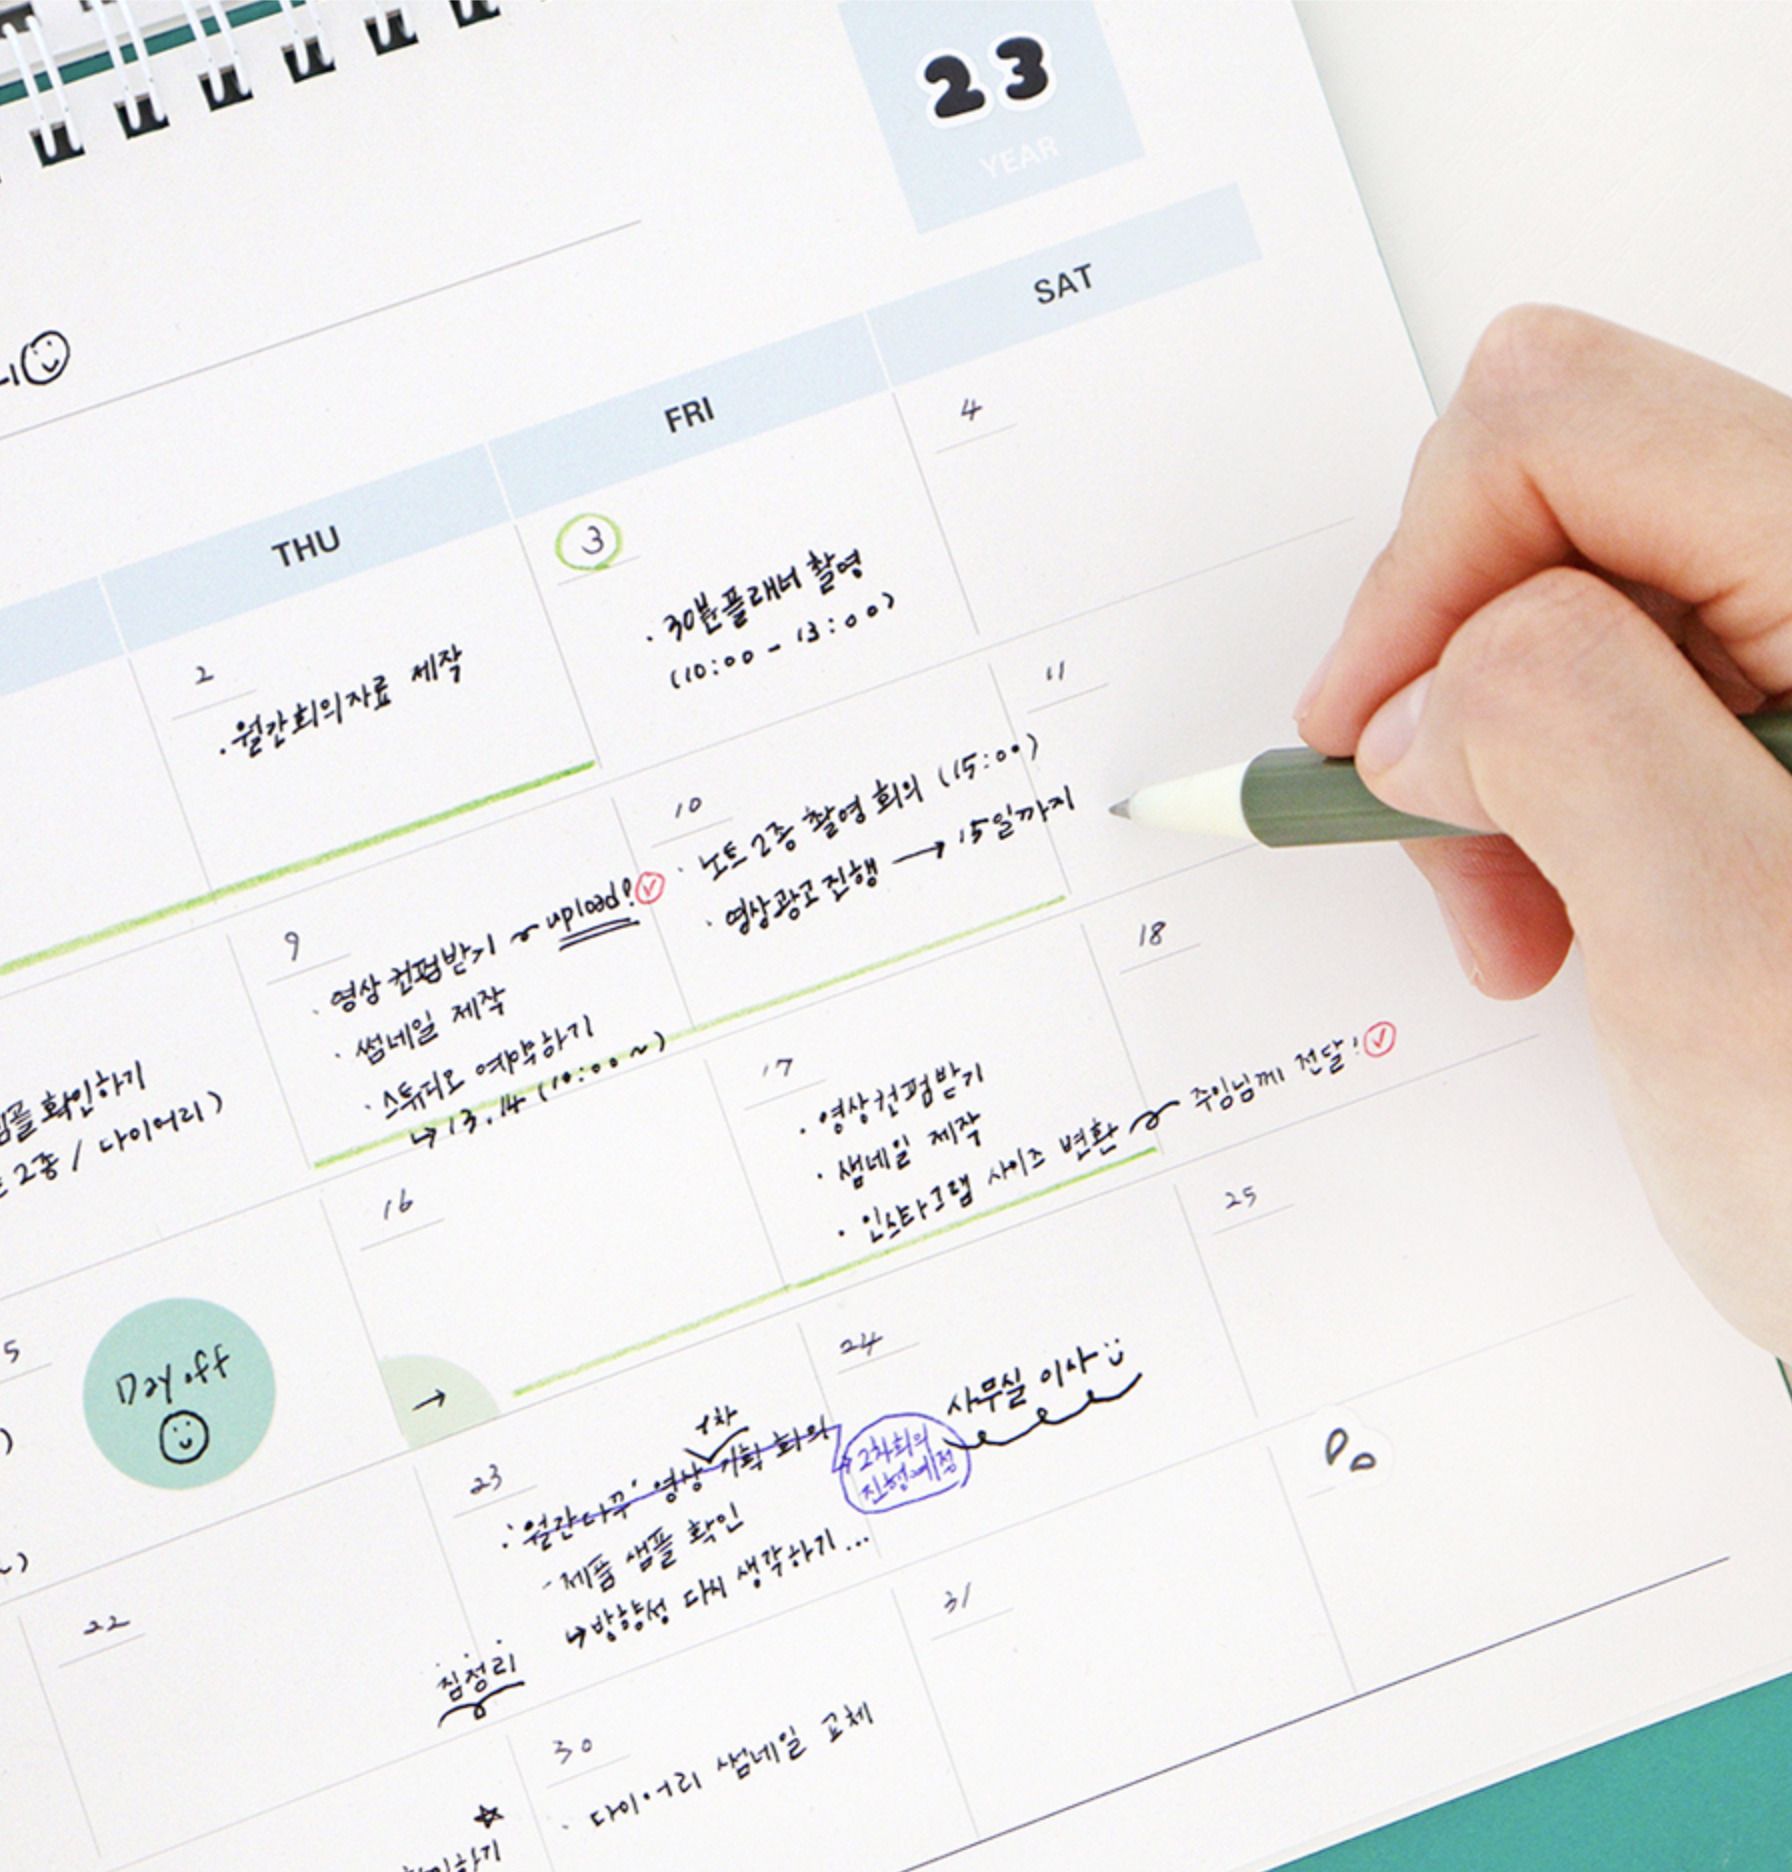 23
YEAR
THU
FRI
SAT
2
· 월간회의자료 제작
3
· 30분플래너 촬영
(10:00 - 13:00)
4
확인하기
2종 / 다이어리)
9
· 영상 컨펌받기 ~ upload!
· 썸네일 제작
· 스튜디오 예약하기
↳ 13. 14 (10:00 ~)
10
· 노트 2종 촬영 회의 (15:00)
· 영상광고 진행 → 15일까지
11
5
Day off
16
→
17
· 영상컨펌받기
· 썸네일 제작
· 인스타그램 사이즈 변환 ~ 주임님께 전달!
18
22
짐정리
23
1차
· '월간다꾸' 영상 기획 회의
- 제품 샘플 확인
→ 방향성 다시 생각하기...
24
2차회의
진행예정
사무실 이사
25
하기
30
· 다이어리 썸네일 교체
31